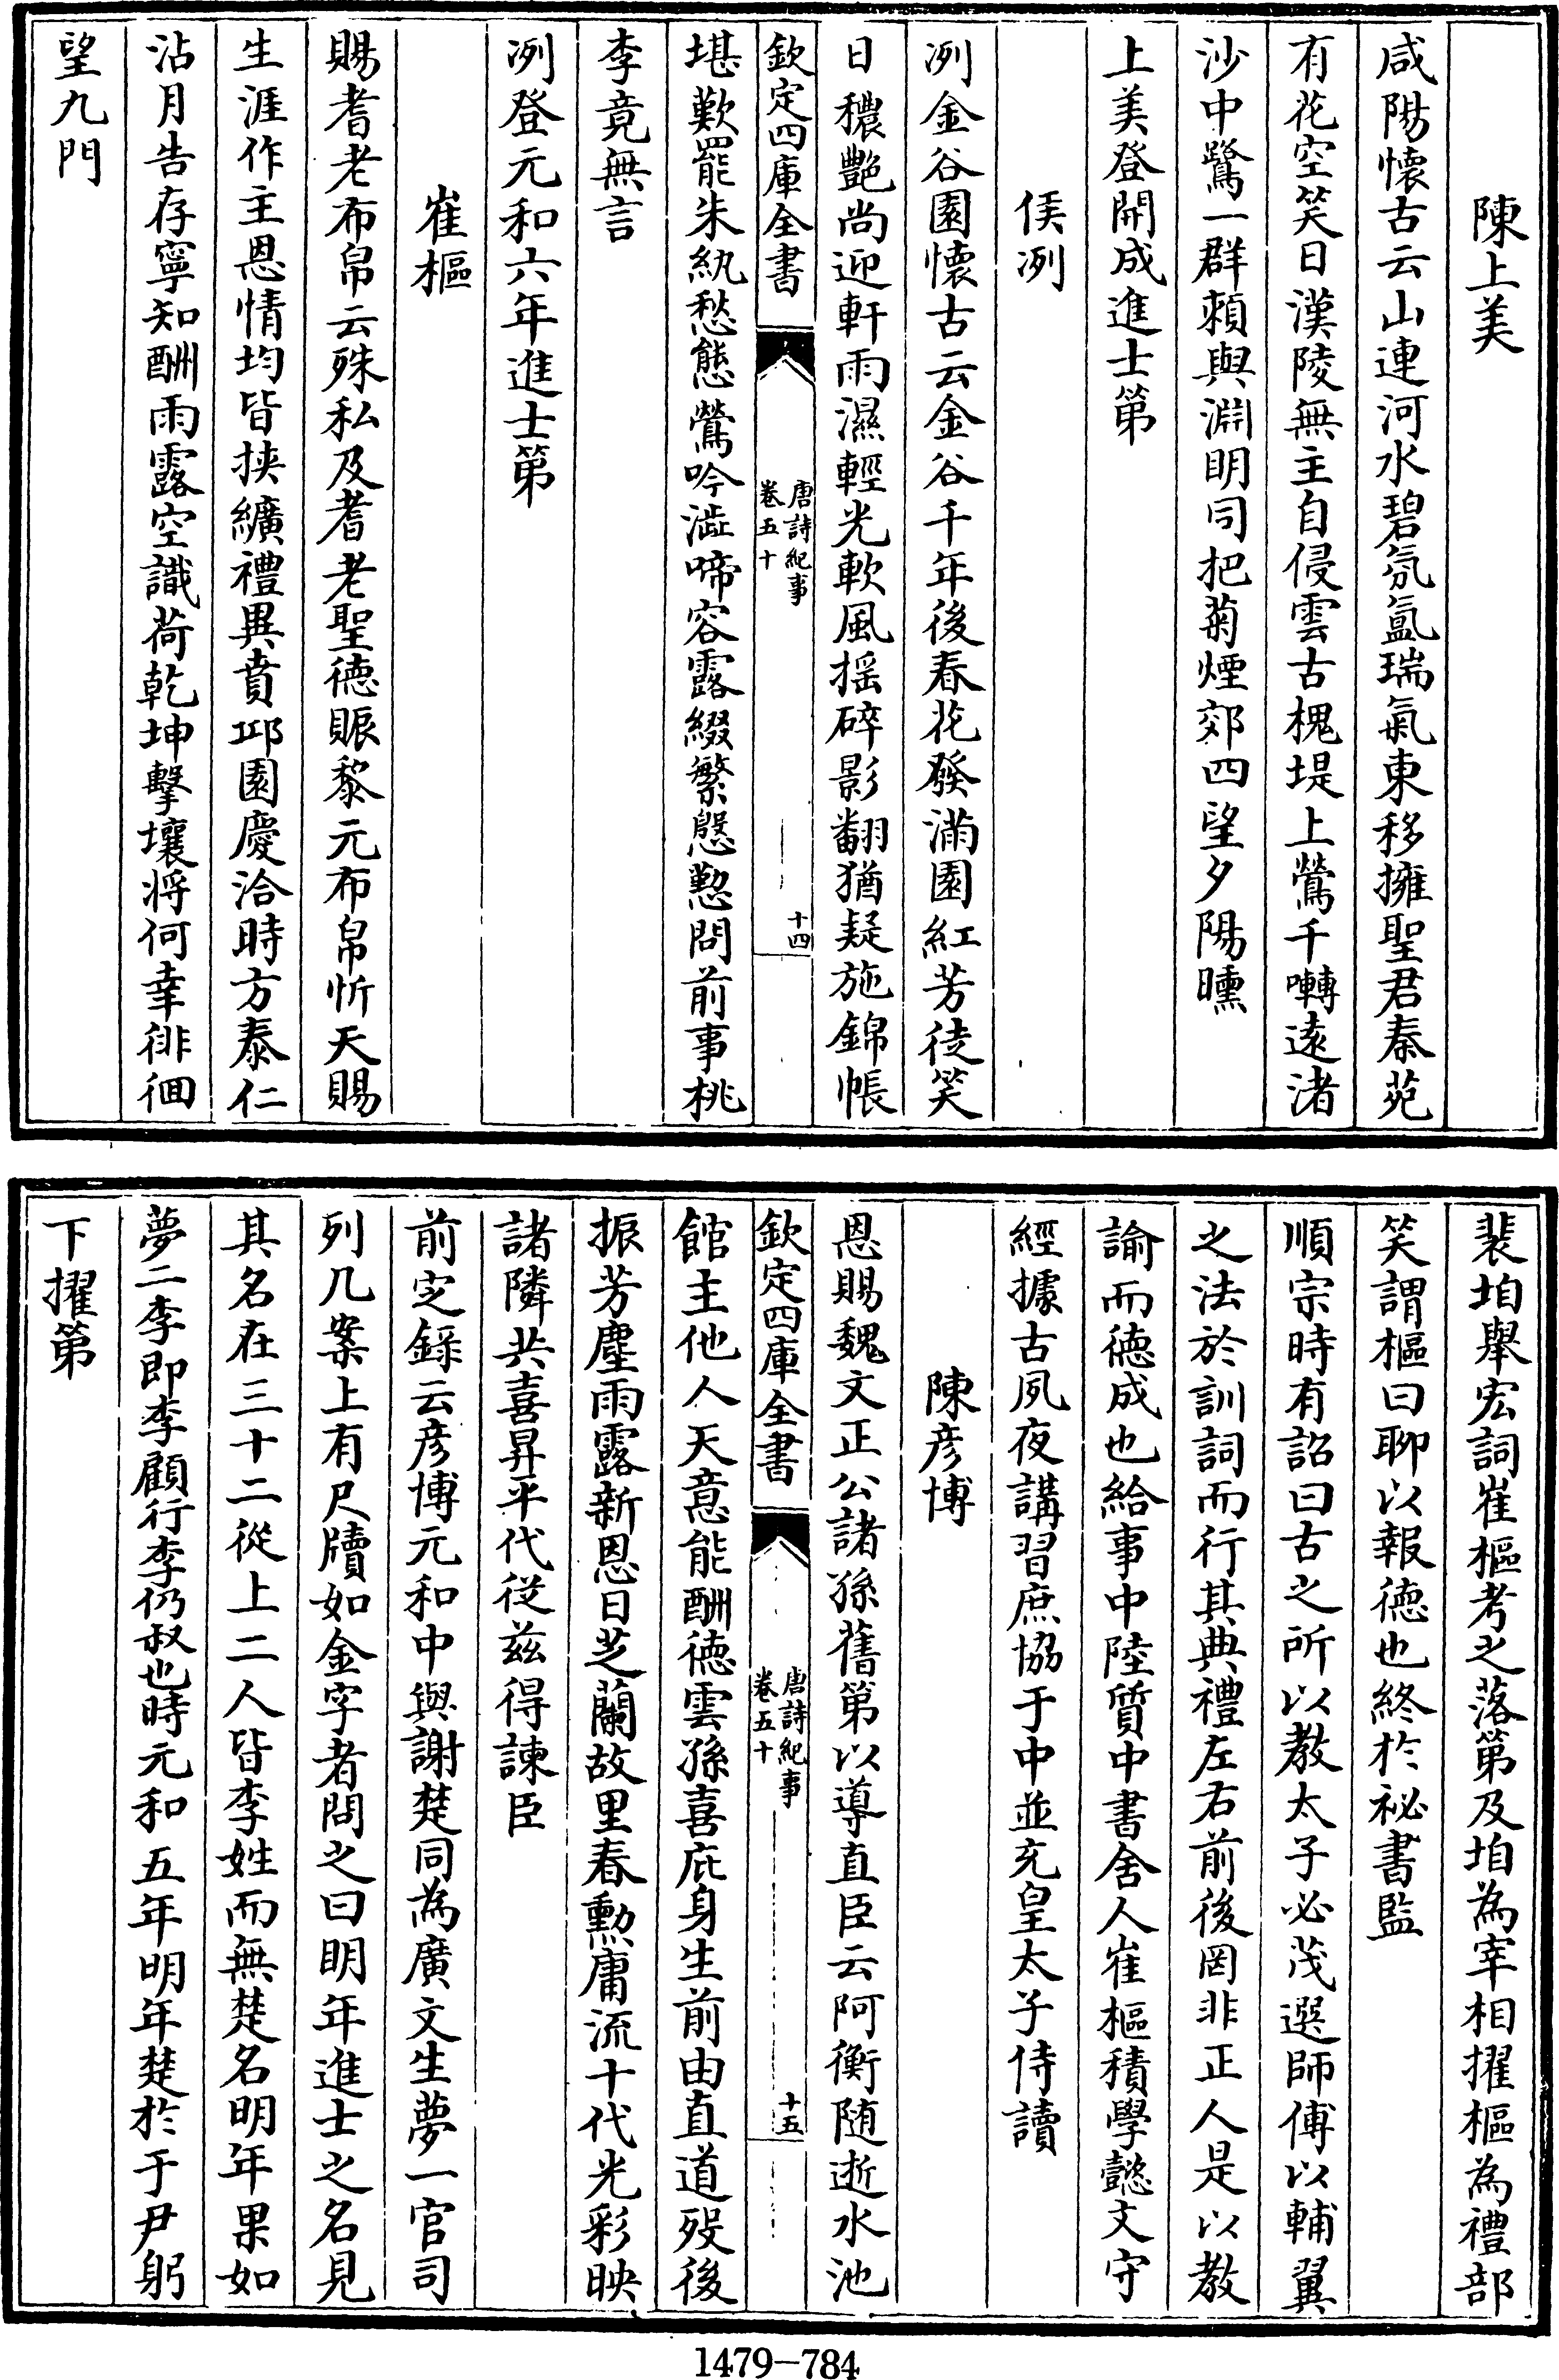 陳上美
咸陽懷古云山連河水碧氛氳瑞氣東移擁聖君秦苑
有花空笑日漢陵無主自侵雲古槐堤上鶯千囀遠渚
沙中鷺一群頼與淵明同把菊煙郊四望夕陽曛
上美登開成進士第
侯冽
冽金谷園懷古云金谷千年後春花發滿園紅芳徒笑
日穠艷尚迎軒雨濕輕光軟風揺碎影翻猶疑施錦帳
欽定四庫全書
唐詩紀事
卷五十
十四
堪歎罷朱紈愁態鶯吟澁啼容露綴繁慇懃問前事桃
李竟無言
冽登元和六年進士第
崔樞
賜耆老布帛云殊私及耆老聖徳賑黎元布帛忻天賜
生涯作主恩情均皆挾纊禮異賁邱園慶洽時方泰仁
沾月告存寧知酬雨露空識荷乾坤擊壤将何幸徘徊
望九門
裴垍舉宏詞崔樞考之落第及垍為宰相擢樞為禮部
笑謂樞曰聊以報徳也終於祕書監
順宗時有詔曰古之所以教太子必茂選師傅以輔翼
之法於訓詞而行其典禮左右前後罔非正人是以教
諭而徳成也給事中陸質中書舍人崔樞積學懿文守
經據古夙夜講習庶協于中並充皇太子侍讀
陳彦博
恩賜魏文正公諸孫舊第以導直臣云阿衡随逝水池
欽定四庫全書
唐詩紀事
卷五十
十五
館主他人天意能酬徳雲孫喜庇身生前由直道歿後
振芳塵雨露新恩日芝蘭故里春勲庸流十代光彩映
諸隣共喜昇平代従兹得諫臣
前定錄云彦博元和中與謝楚同為廣文生夢一官司
列几案上有尺牘如金字者問之曰明年進士之名見
其名在三十二從上二人皆李姓而無楚名明年果如
夢二李即李顧行李仍叔也時元和五年明年楚於于尹躬
下擢第
1479-784